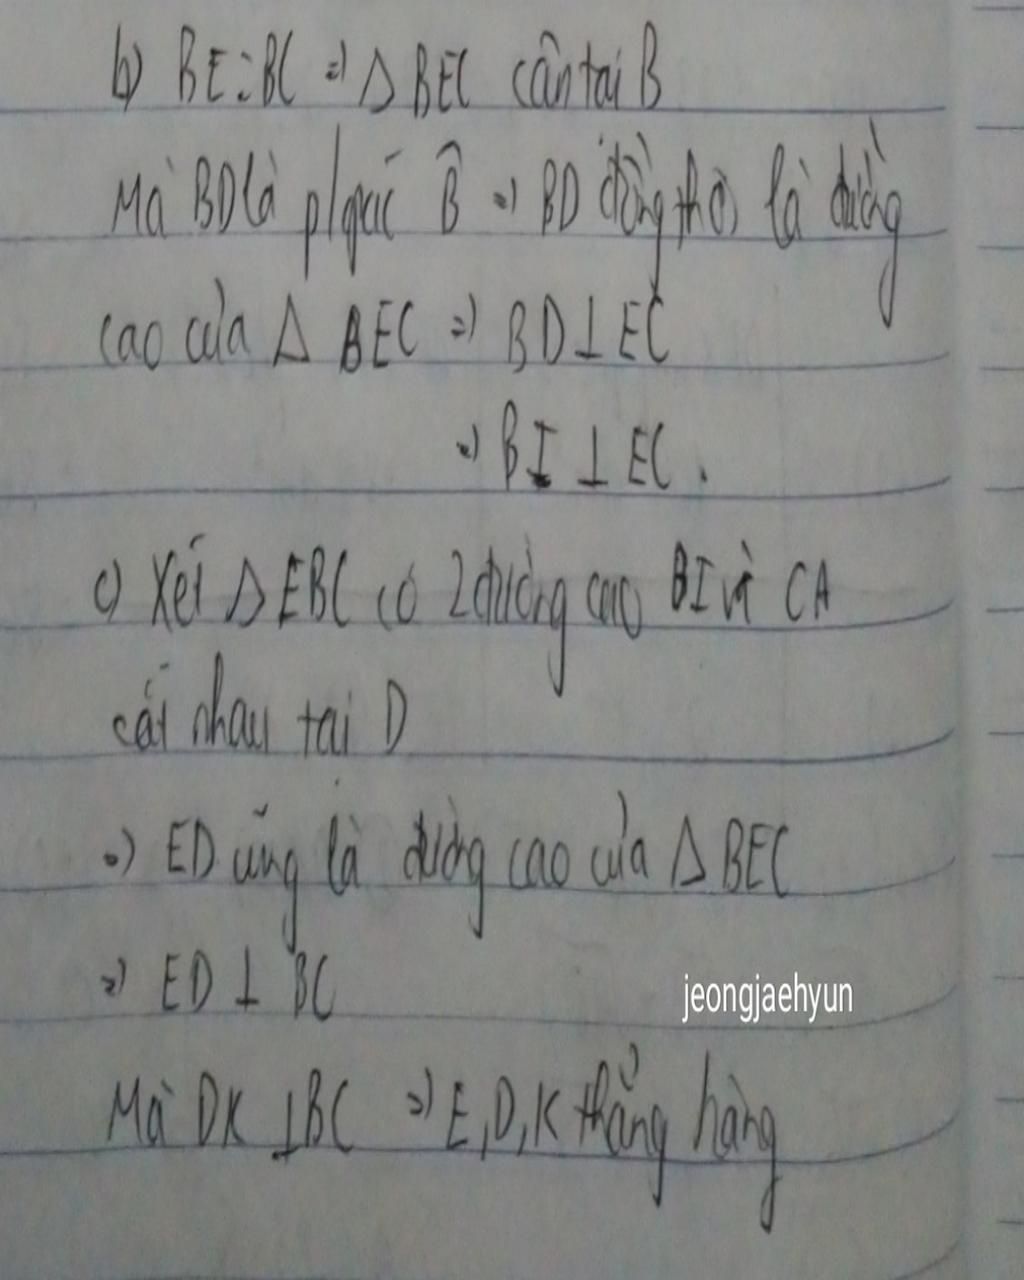 b) BE=BC => Δ BEC cân tại B
Mà BD là p/giác B̂ => BD đồng thời là đường
cao của Δ BEC => BD⊥EC
=> BI ⊥ EC.
c) Xét Δ EBC có 2 đường cao BI và CA
cắt nhau tại D
=> ED cũng là đường cao của Δ BEC
=> ED ⊥ BC
jeongjaehyun
Mà DK ⊥BC => E,D,K thẳng hàng